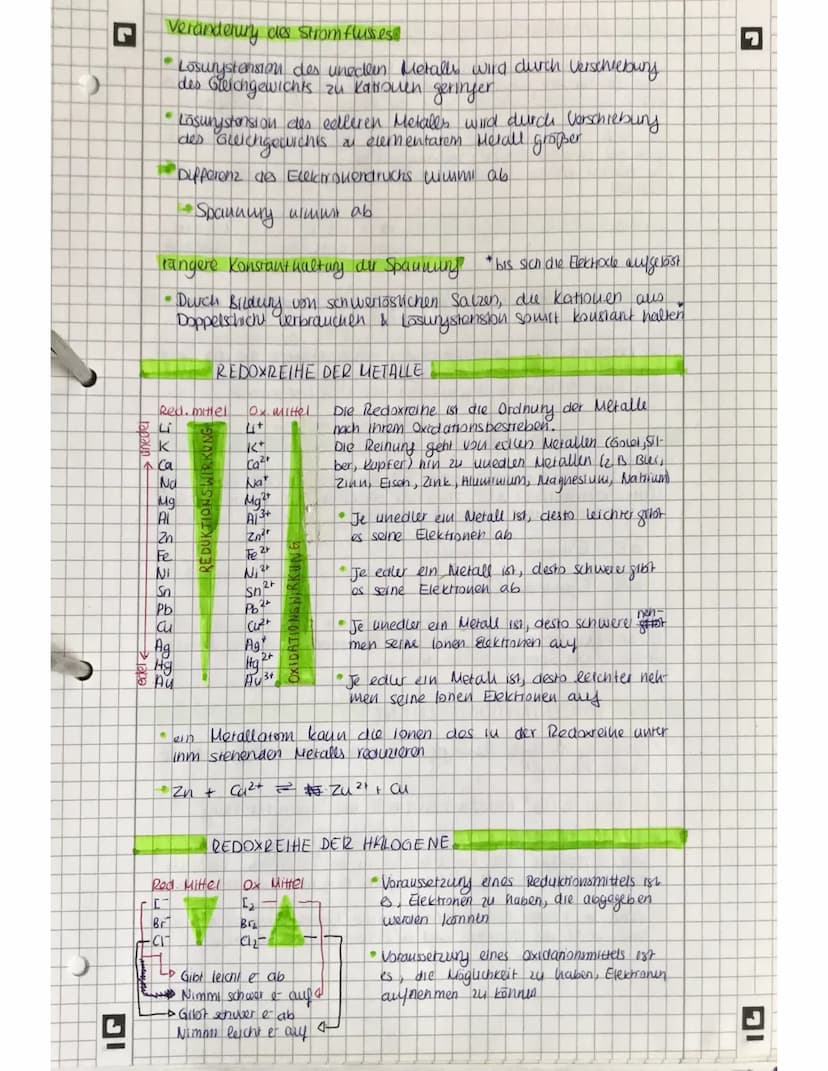 Veränderung des Stromflusses
• Lösungstension des unedeln Metalls wird durch Verschiebung
des Gleichgewichts zu Kationen geringer
• Lösungstension des edleren Metalls wird durch Verschiebung
des Gleichgewichts zu elementarem Metall größer
→ Differenz des Elektronendrucks nimmt ab
↳ Spannung nimmt ab
längere Konstanthaltung der Spannung *bis sich die Elektrode auflöst
• Durch Bildung von schwerlöslichen Salzen, die Kationen aus
Doppelschicht verbrauchen & Lösungstension somit konstant halten*
REDOXREIHE DER METALLE
Red. mittel Ox. mittel
unedel
Li Li⁺
K K⁺
Ca Ca²⁺
Na Na⁺
Mg Mg²⁺
Al Al³⁺
Zn Zn²⁺
Fe Fe²⁺
Ni Ni²⁺
Sn Sn²⁺
Pb Pb²⁺
Cu Cu²⁺
Ag Ag⁺
Hg Hg²⁺
Au Au³⁺
edel
REDUKTIONSWIRKUNG
OXIDATIONSWIRKUNG
Die Redoxreihe ist die Ordnung der Metalle
nach ihrem Oxidationsbestreben.
Die Reihung geht von edlen Metallen (Gold, Sil-
ber, Kupfer) hin zu unedlen Metallen (z.B Blei,
Zinn, Eisen, Zink, Aluminium, Magnesium, Natrium)
• Je unedler ein Metall ist, desto leichter gibt
es seine Elektronen ab
• Je edler ein Metall ist, desto schwerer gibt
es seine Elektronen ab
• Je unedler ein Metall ist, desto schwerer neh-
men seine Ionen Elektronen auf
• Je edler ein Metall ist, desto leichter neh-
men seine Ionen Elektronen auf
• ein Metallatom kann die Ionen des in der Redoxreihe unter
ihm stehenden Metalls reduzieren
→ Zn + Cu²⁺ ⇌ Zn²⁺ + Cu
REDOXREIHE DER HALOGENE
Red. Mittel Ox Mittel
I⁻ I₂
Br⁻ Br₂
Cl⁻ Cl₂
Gibt leicht e⁻ ab
Nimmt schwer e⁻ auf
Gibt schwer e⁻ ab
Nimmt leicht e⁻ auf
• Voraussetzung eines Reduktionsmittels ist
es, Elektronen zu haben, die abgegeben
werden können
• Voraussetzung eines Oxidationsmittels ist
es, die Möglichkeit zu haben, Elektronen
aufnehmen zu können